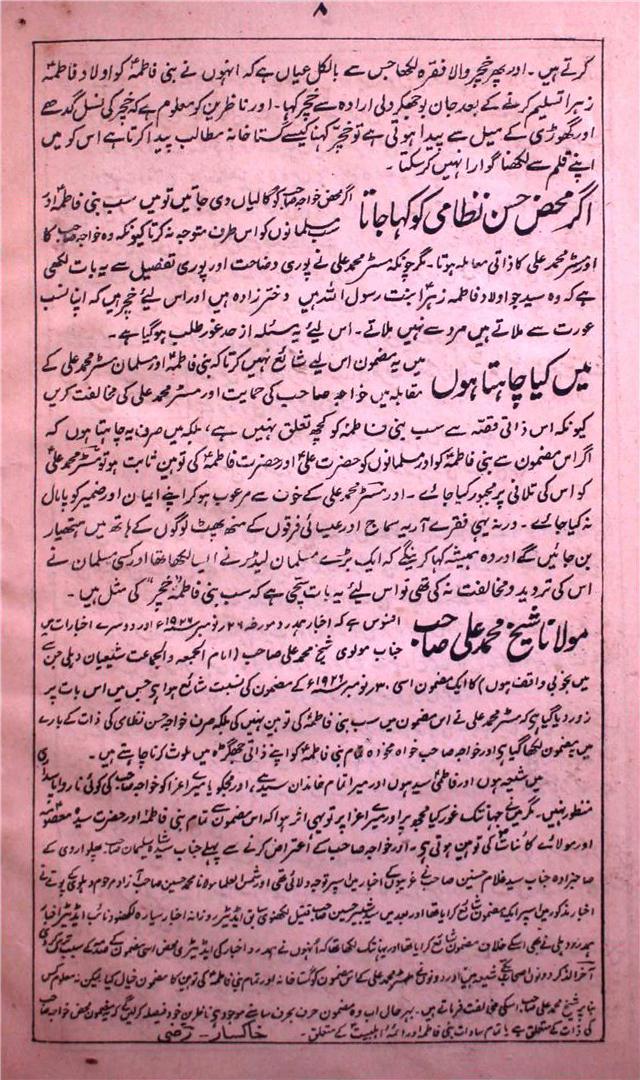 ۸
کرتے ہیں۔ اور پھر خچر والا فقرہ لکھا جس سے بالکل عیاں ہے کہ انہوں نے بنی فاطمہؑ کو اولاد فاطمہؑ
زہرا تسلیم کرنے کے بعد جان بوجھکر دلی ارادہ سے خچر کہا۔ اور ناظرین کو معلوم ہے کہ خچر کی نسل گدھے
اور گھوڑی کے میل سے پیدا ہوتی ہے تو خچر کہنا کیسے گستاخانہ مطالب پیدا کرتا ہے اس کو میں
اپنے قلم سے لکھنا گوارا نہیں کر سکتا۔
اگر محض حسن نظامی کو کہا جاتا
اگر محض خواجہ صاحب کو گالیاں دی جاتیں تو میں سب بنی فاطمہؑ اور
سب مسلمانوں کو اس طرف متوجہ نہ کرتا کیونکہ وہ خواجہ صاحب کا
اور مسٹر محمد علی کا ذاتی معاملہ ہوتا۔ مگر چونکہ مسٹر محمد علی نے پوری وضاحت اور پوری تفصیل سے یہ بات لکھی
ہے کہ وہ سید جو اولاد فاطمہ زہراؑ بنت رسول اللہ ہیں دختر زادہ ہیں اور اس لیئے خچر ہیں کہ اپنا نسب
عورت سے ملاتے ہیں مرد سے نہیں ملاتے۔ اس لیئے یہ مسئلہ از حد غور طلب ہوگیا ہے۔
میں کیا چاہتا ہوں
میں یہ مضمون اس لیے شائع نہیں کرتا کہ بنی فاطمہؑ اور مسلمان مسٹر محمد علی کے
مقابلہ میں خواجہ صاحب کی حمایت اور مسٹر محمد علی کی مخالفت کریں
کیونکہ اس ذاتی قصّہ سے سب بنی فاطمہؑ کو کچھ تعلق نہیں ہے، بلکہ میں صرف یہ چاہتا ہوں کہ
اگر اس مضمون سے بنی فاطمہؑ کو اور مسلمانوں کو حضرت علیؑ اور حضرت فاطمہؑ کی توہین ثابت ہو تو مسٹر محمد علی
کو اس کی تلافی پر مجبور کیا جائے۔ اور مسٹر محمد علی کے خوف سے مرعوب ہو کر اپنے ایمان اور ضمیر کو پامال
نہ کیا جائے۔ ورنہ یہی فقرے آریہ سماج اور عیسائی فرقوں کے منھ پھٹ لوگوں کے ہاتھ میں ہتھیار
بن جائیں گے اور وہ ہمیشہ کہا کرینگے کہ ایک بڑے مسلمان لیڈر نے ایسا لکھا تھا اور کسی مسلمان نے
اس کی تردید و مخالفت نہ کی تھی تو اس لیئے یہ بات سچی ہے کہ سب بنی فاطمہؑ "خچر" کی مثل ہیں۔
مولانا شیخ محمد علی صاحب
افسوس ہے کہ اخبار ہمدرد مورخہ ۲۶ نومبر ۱۹۲۶ء اور دوسرے اخبارات میں
جناب مولوی شیخ محمد علی صاحب (امام الجمعہ والجماعت شیعیان دہلی جن سے
میں بخوبی واقف ہوں) کا ایک مضمون اسی ۳۰ نومبر ۱۹۲۶ء کے مضمون کی نسبت شائع ہوا ہے جس میں اس بات پر
زور دیا گیا ہے کہ مسٹر محمد علی نے اس مضمون میں سب بنی فاطمہؑ کی توہین نہیں کی بلکہ صرف خواجہ حسن نظامی کی ذات کے بارے
میں یہ مضمون لکھا گیا ہے اور خواجہ صاحب خواہ مخواہ تمام بنی فاطمہؑ کو اپنے ذاتی جھگڑہ میں ملوث کرنا چاہتے ہیں۔
میں شیعہ ہوں اور فاطمیؑ سید ہوں اور میرا تمام خاندان سید ہے، اور مجھکو یا میرے اعزا کو خواجہ صاحب کی کوئی ناروا پاسداری
منظور نہیں۔ مگر میں نے جہانتک غور کیا مجھ پر اور میرے اعزا پر تو یہی اثر ہوا کہ اس مضمون سے تمام بنی فاطمہؑ اور حضرت سیدہ معصومہ
اور مولائے کائنات کی توہین ہوتی ہے۔ اور خواجہ صاحب کے اعتراض کرنے سے پہلے جناب سید شاہ سلیمان صاحب پھلواروی کے
صاحبزادہ جناب سید غلام حسنین صاحب نے اخبار میں اسپر توجہ دلائی تھی اور شمس العلما مولانا محمد حسین صاحب آزاد مرحوم دہلوی کے پوتے نے
اخبار مذکور میں اسپر ایک مضمون شائع کرایا تھا اور بعد میں سید حسین صاحب قتیل لکھنوی سابق ایڈیٹر روزانہ اخبار سیارہ لکھنؤ و نائب ایڈیٹر اخبار
ہمدرد دہلی نے بھی اسکے خلاف مضمون شائع کرایا تھا اور یہانتک لکھا تھا کہ انہوں نے ہمدرد اخبار کی ایڈیٹری محض اسی مضمون کے صدمہ کے سبب ترک کی
آخر الذکر دونوں صاحب شیعہ ہیں اور دونوں نے مسٹر محمد علی کے اس مضمون کو گستاخانہ اور تمام بنی فاطمہؑ کی توہین کا مضمون خیال کیا لیکن نہ معلوم کس
بنا پر شیخ محمد علی صاحب اسکی مخالفت فرماتے ہیں۔ بہر حال اب وہ مضمون حرف بحرف سامنے موجود ہے ناظرین خود فیصلہ کر لینگے کہ یہ مضمون محض خواجہ صاحب
کی ذات کے متعلق ہے یا تمام سادات بنی فاطمہؑ اور ائمہ اہلبیت کے متعلق۔ خاکسار۔ رضی